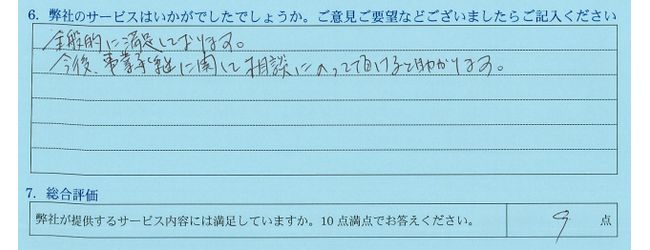 6. 弊社のサービスはいかがでしたでしょうか。ご意見ご要望などございましたらご記入ください
全般的に満足しております。
今後、事業承継に関して相談にのって頂けると助かります。
7. 総合評価
弊社が提供するサービス内容には満足していますか。10点満点でお答えください。 9 点